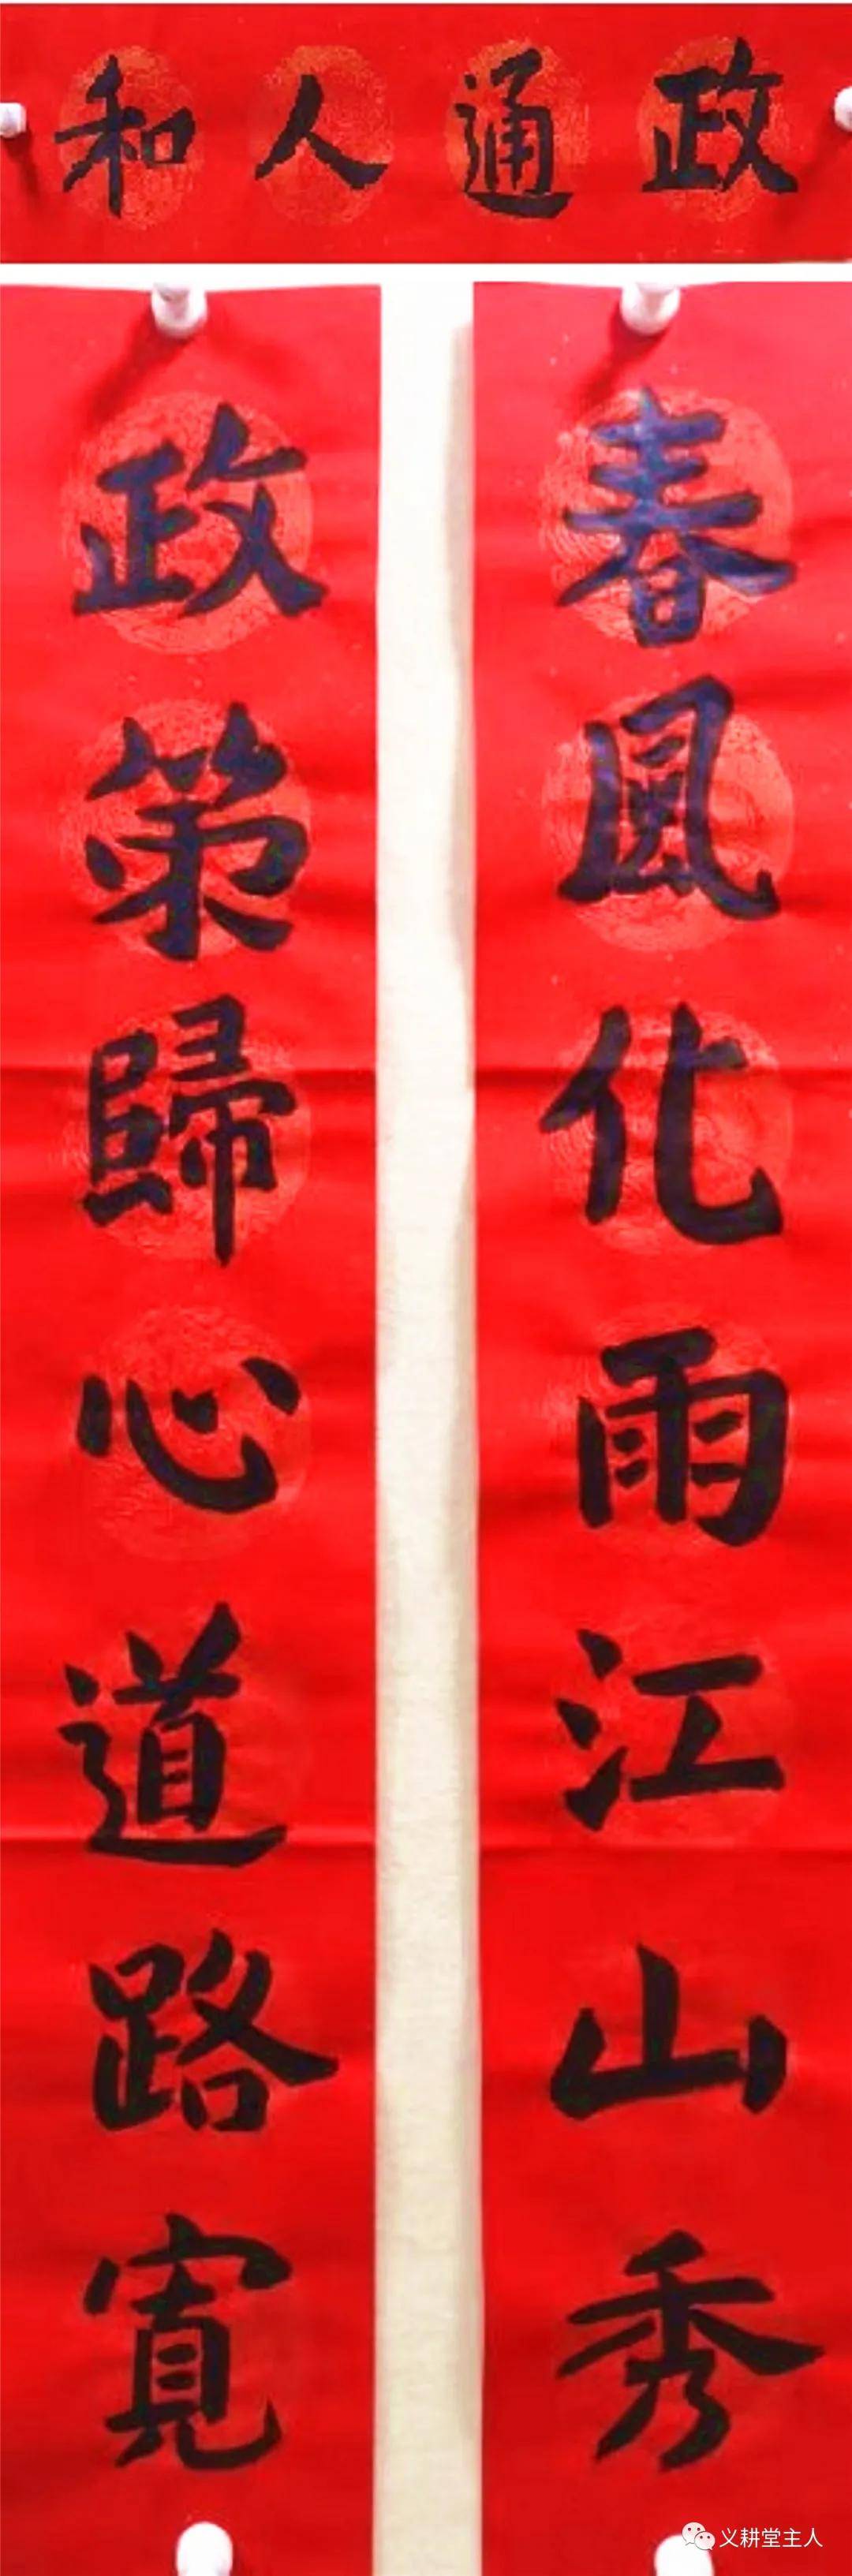 政通人和
春風化雨江山秀
政策歸心道路寬
义耕堂主人